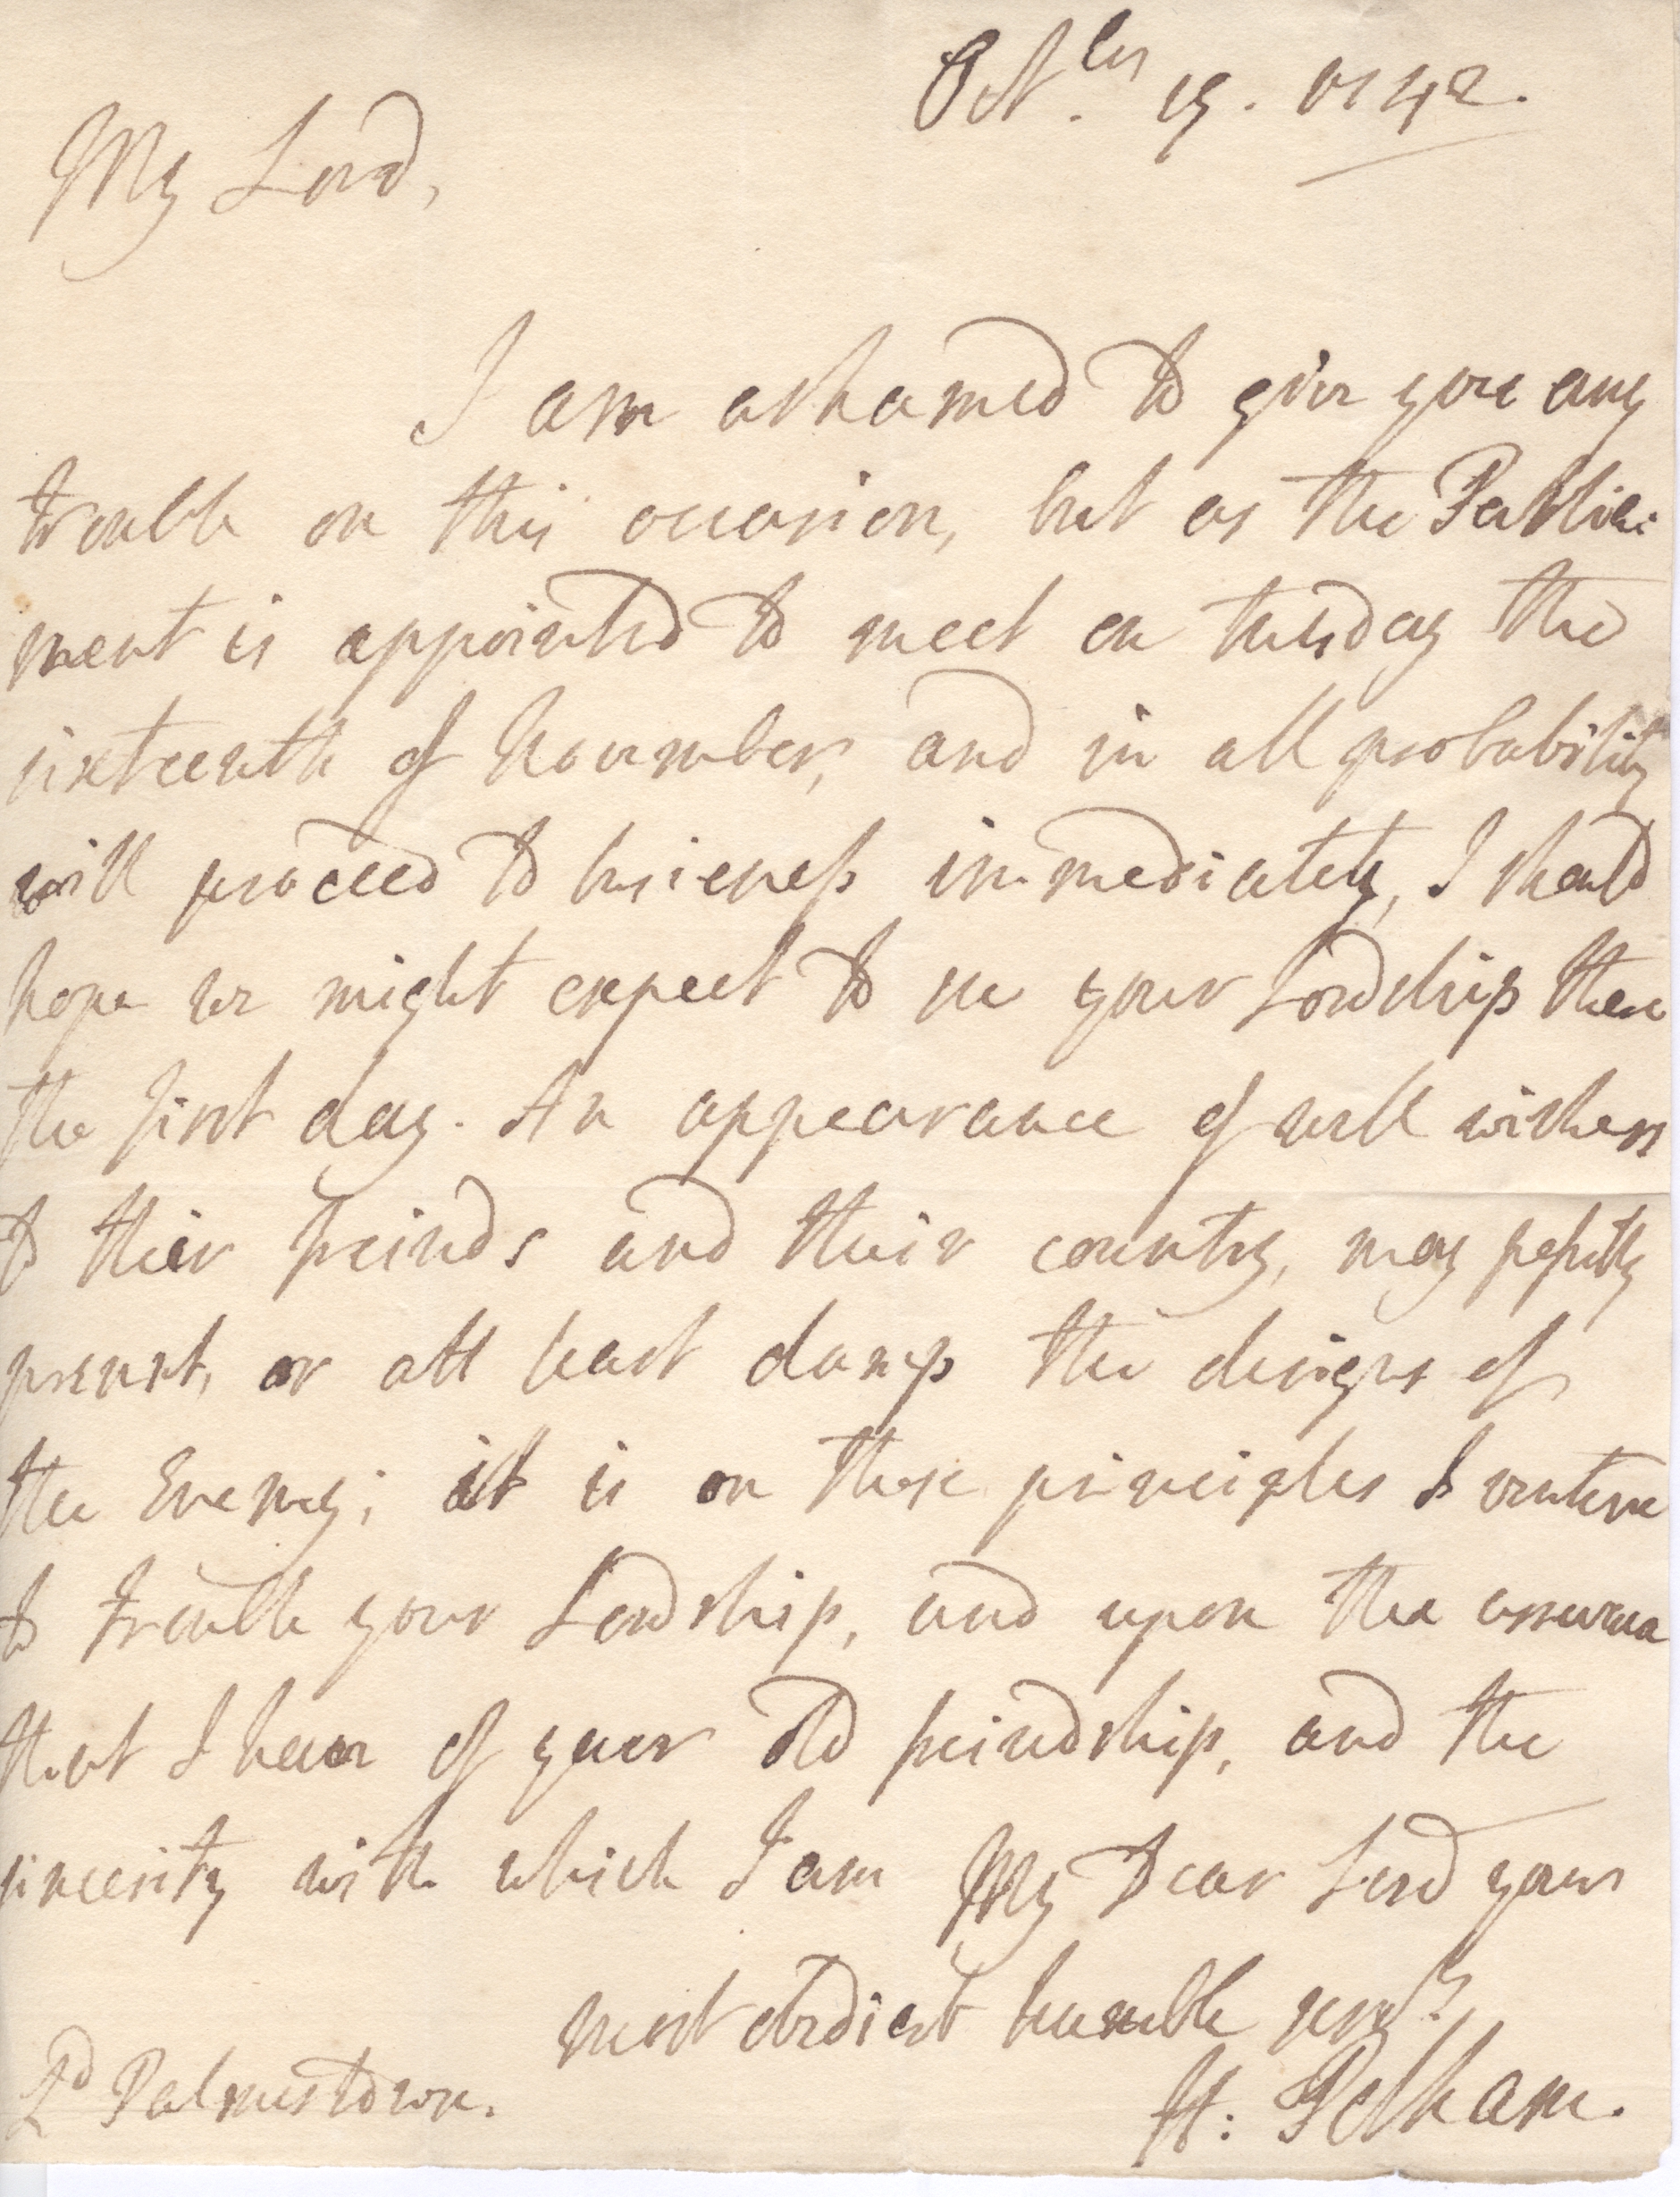 Octber 19. 1742.
My Lord,
I am ashamed to give you any
trouble on this occasion, but as the Parlia:
ment is appointed to meet on tuesday the
sixteenth of November, and in all probability
will proceed to busieness immediately, I should
hope we might expect to see your Lordship there
the first day. An appearance of well wishers
to their freinds and their country, may possibly
prevent, or att least damp the designs of
the Enemy; it is on these principles I venture
to trouble your Lordship, and upon the assurance
that I have of your old freindship, and the
sincerity with which I am My Dear Lord your
most obedient humble servt
H: Pelham.
Ld Palmerstown.